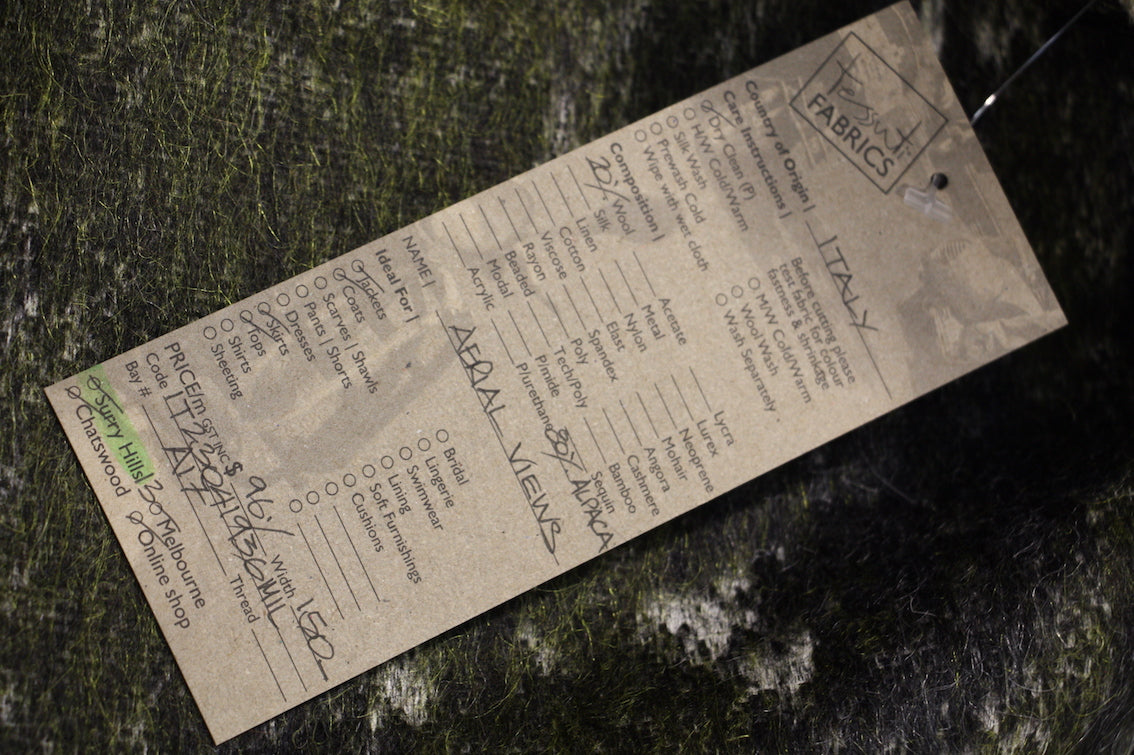 Tessuti
FABRICS
Country of Origin | ITALY
Care Instructions |
Dry Clean (P)
H/W Cold/Warm
Silk Wash
Prewash Cold
Wipe with wet cloth
Before cutting please
test fabric for colour
fastness & shrinkage
M/W Cold/Warm
Wool Wash
Wash Separately
Composition |
20% Wool
Silk
Linen
Cotton
Viscose
Rayon
Beaded
Modal
Acrylic
Acetate
Metal
Nylon
Elast
Spandex
Poly
Tech/Poly
P/mide
P/urethane
Lycra
Lurex
Neoprene
Mohair
Angora
Cashmere
Bamboo
Sequin
80% ALPACA
NAME | AERIAL VIEWS
Ideal For |
Jackets
Coats
Scarves | Shawls
Pants | Shorts
Dresses
Skirts
Tops
Shirts
Sheeting
Bridal
Lingerie
Swimwear
Lining
Soft Furnishings
Cushions
PRICE/m GST INC $ 96./ Width 150
Code
Bay # A17 Thread
Surry Hills 30 Melbourne
Chatswood Online shop